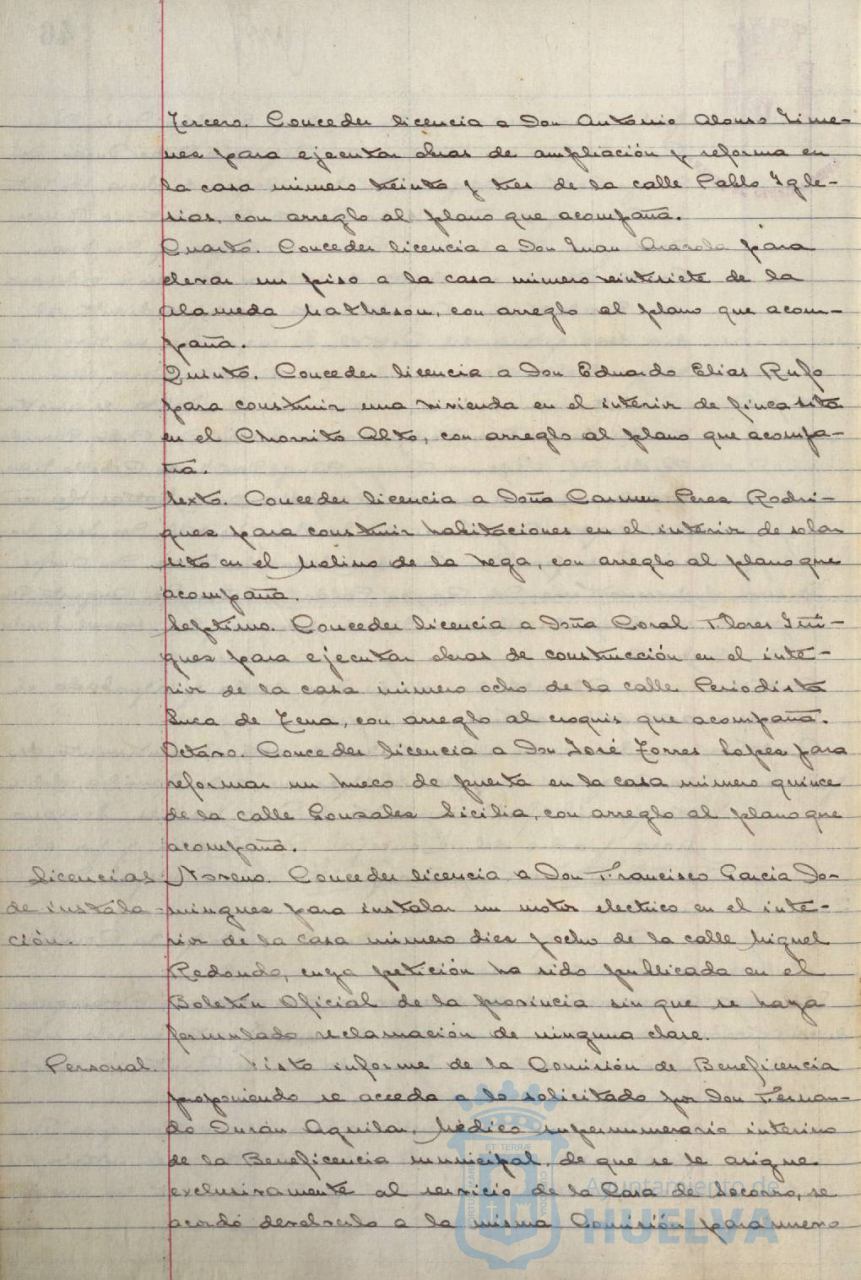 Tercero. Conceder licencia a Don Antonio Alonso Jime-
nes para ejecutar obras de ampliación y reforma en
la casa número treinta y tres de la calle Pablo Igle-
sias, con arreglo al plano que acompaña.
Cuarto. Conceder licencia a Don Juan para
elevar un piso a la casa número veintisiete de la
Alameda Matheson, con arreglo al plano que acom-
paña.
Quinto. Conceder licencia a Don Eduardo Elias Rufo
para construir una vivienda en el interior de finca sita
en el Chorrito Alto, con arreglo al plano que acompa-
ña.
Sexto. Conceder licencia a Doña Carmen Peres Rodri-
gues para construir habitaciones en el interior de solar
sito en el Molino de la Vega, con arreglo al plano que
acompaña.
Septimo. Conceder licencia a Doña Coral Flores Iñi-
gues para ejecutar obras de construcción en el inte-
rior de la casa número ocho de la calle Periodista
Luca de Tena, con arreglo al croquis que acompaña.
Octavo. Conceder licencia a Don José Torres Lopes para
reformar un hueco de puerta en la casa número quince
de la calle Gonzales Sicilia, con arreglo al plano que
acompaña.
licencias de instala-ción.
Noveno. Conceder licencia a Don Francisco Garcia Do-
mingues para instalar un motor electrico en el inte-
rior de la casa número dies y ocho de la calle Miguel
Redondo, cuya petición ha sido publicada en el
Boletín Oficial de la provincia sin que se haya
formulado reclamación de ninguna clase.
Personal.
Visto informe de la Comisión de Beneficencia
proponiendo se acceda a lo solicitado por Don Fernan-
do Durán Aguilar, Médico supernumerario interino
de la Beneficencia municipal, de que se le asigne
exclusivamente al servicio de la Casa de Socorro, se
acordó devolverlo a la misma Comisión para nuevo
Ayuntamiento de
HUELVA